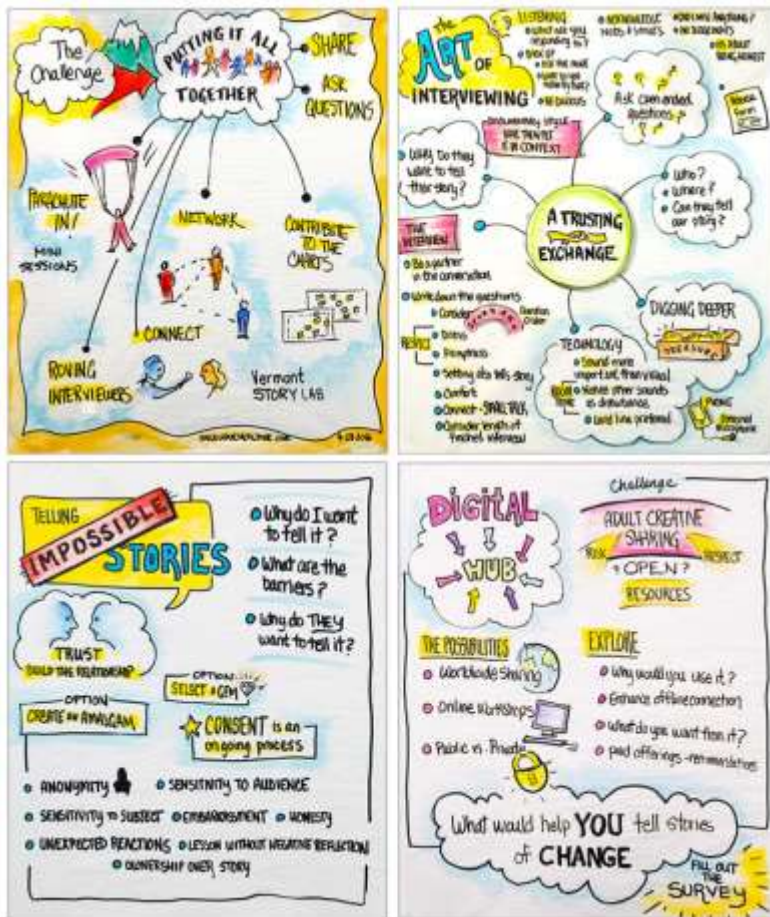 The
Challenge
PUTTING IT ALL
TOGETHER
SHARE
ASK
QUESTIONS
PARACHUTE
IN!
MINI
SESSIONS
NETWORK
CONTRIBUTE
TO THE
CHARTS
CONNECT
ROVING
INTERVIEWERS
Vermont
STORY LAB
The
ART
OF
INTERVIEWING
LISTENING
Ask open ended
questions
Why Do they
want to tell
their story?
Who?
Where?
Can they tell
our story?
A TRUSTING
EXCHANGE
THE
INTERVIEW
Be a partner
in the conversation
Write down the questions
Consider
Question
Order
RESPECT
Dress
Setting also tells story
Comfort
Connect - SMALL TALK
Consider length of
finished interview
DIGGING DEEPER
TREASURE
TECHNOLOGY
Sound more
important than visual
ROOM
TONE
Notice other sounds
as disturbance
Land line preferred
TELLING
IMPOSSIBLE
STORIES
Why do I want
to tell it?
What are the
barriers?
Why do THEY
want to tell it?
TRUST
BUILD THE RELATIONSHIP
OPTION
SELECT a GEM
OPTION
CREATE an AMALGAM
CONSENT is an
ongoing process
ANONYMITY
SENSITIVITY TO AUDIENCE
SENSITIVITY to SUBJECT
EMBARRASSMENT
HONESTY
UNEXPECTED REACTIONS
LESSON WITHOUT NEGATIVE REFLECTION
OWNERSHIP OVER STORY
DIGITAL
HUB
Challenge
ADULT CREATIVE
SHARING
RISK
RESPECT
OPEN?
RESOURCES
THE POSSIBILITIES
Worldwide Sharing
Online Workshops
Public vs. Private
EXPLORE
Why would you use it?
Enhance offline connection
What do you want from it?
paid offerings
What would help YOU tell stories
of CHANGE
FILL OUT
THE
SURVEY